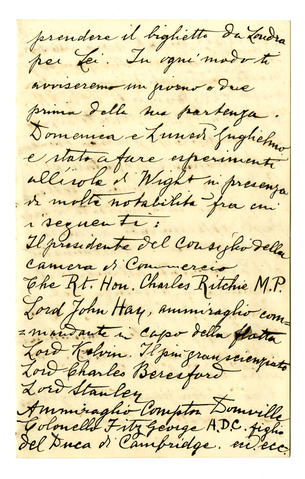 prendere il biglietto da Londra
per Lei. In ogni modo ti
avviseremo un giorno o due
prima della sua partenza.
Domenica e Lunedì Guglielmo
e stato a fare esperimenti
all'isola di Wight in presenza
di molte notabilità fra cui
i seguenti:
Il presidente del Consiglio della
camera di Commercio
The Rt. Hon. Charles Ritchie M.P.
Lord John Hay, ammiraglio com-
=mandante in capo della flotta
Lord Kelvin. Il più gran scienziato
Lord Charles Beresford
Lord Stanley
Ammiraglio Compton Domville
Colonello Fitz George A.D.C. figlio
del Duca di Cambridge. ecc. ecc.